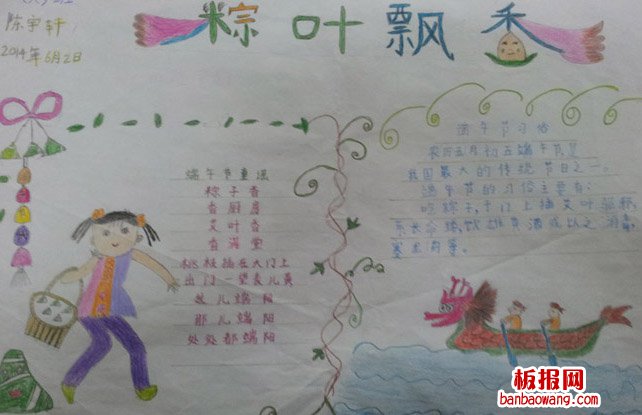 陈宇轩
2014年6月2日
粽叶飘香
端午节童谣
粽子香
香厨房
艾叶香
香满堂
桃枝插在大门上
出门一望麦儿黄
这儿端阳
那儿端阳
处处都端阳
端午节习俗
农历五月初五端午节是
我国最大的传统节日之一。
端午节的习俗主要有:
吃粽子,于门上插艾叶
板报网
banbaowang.com